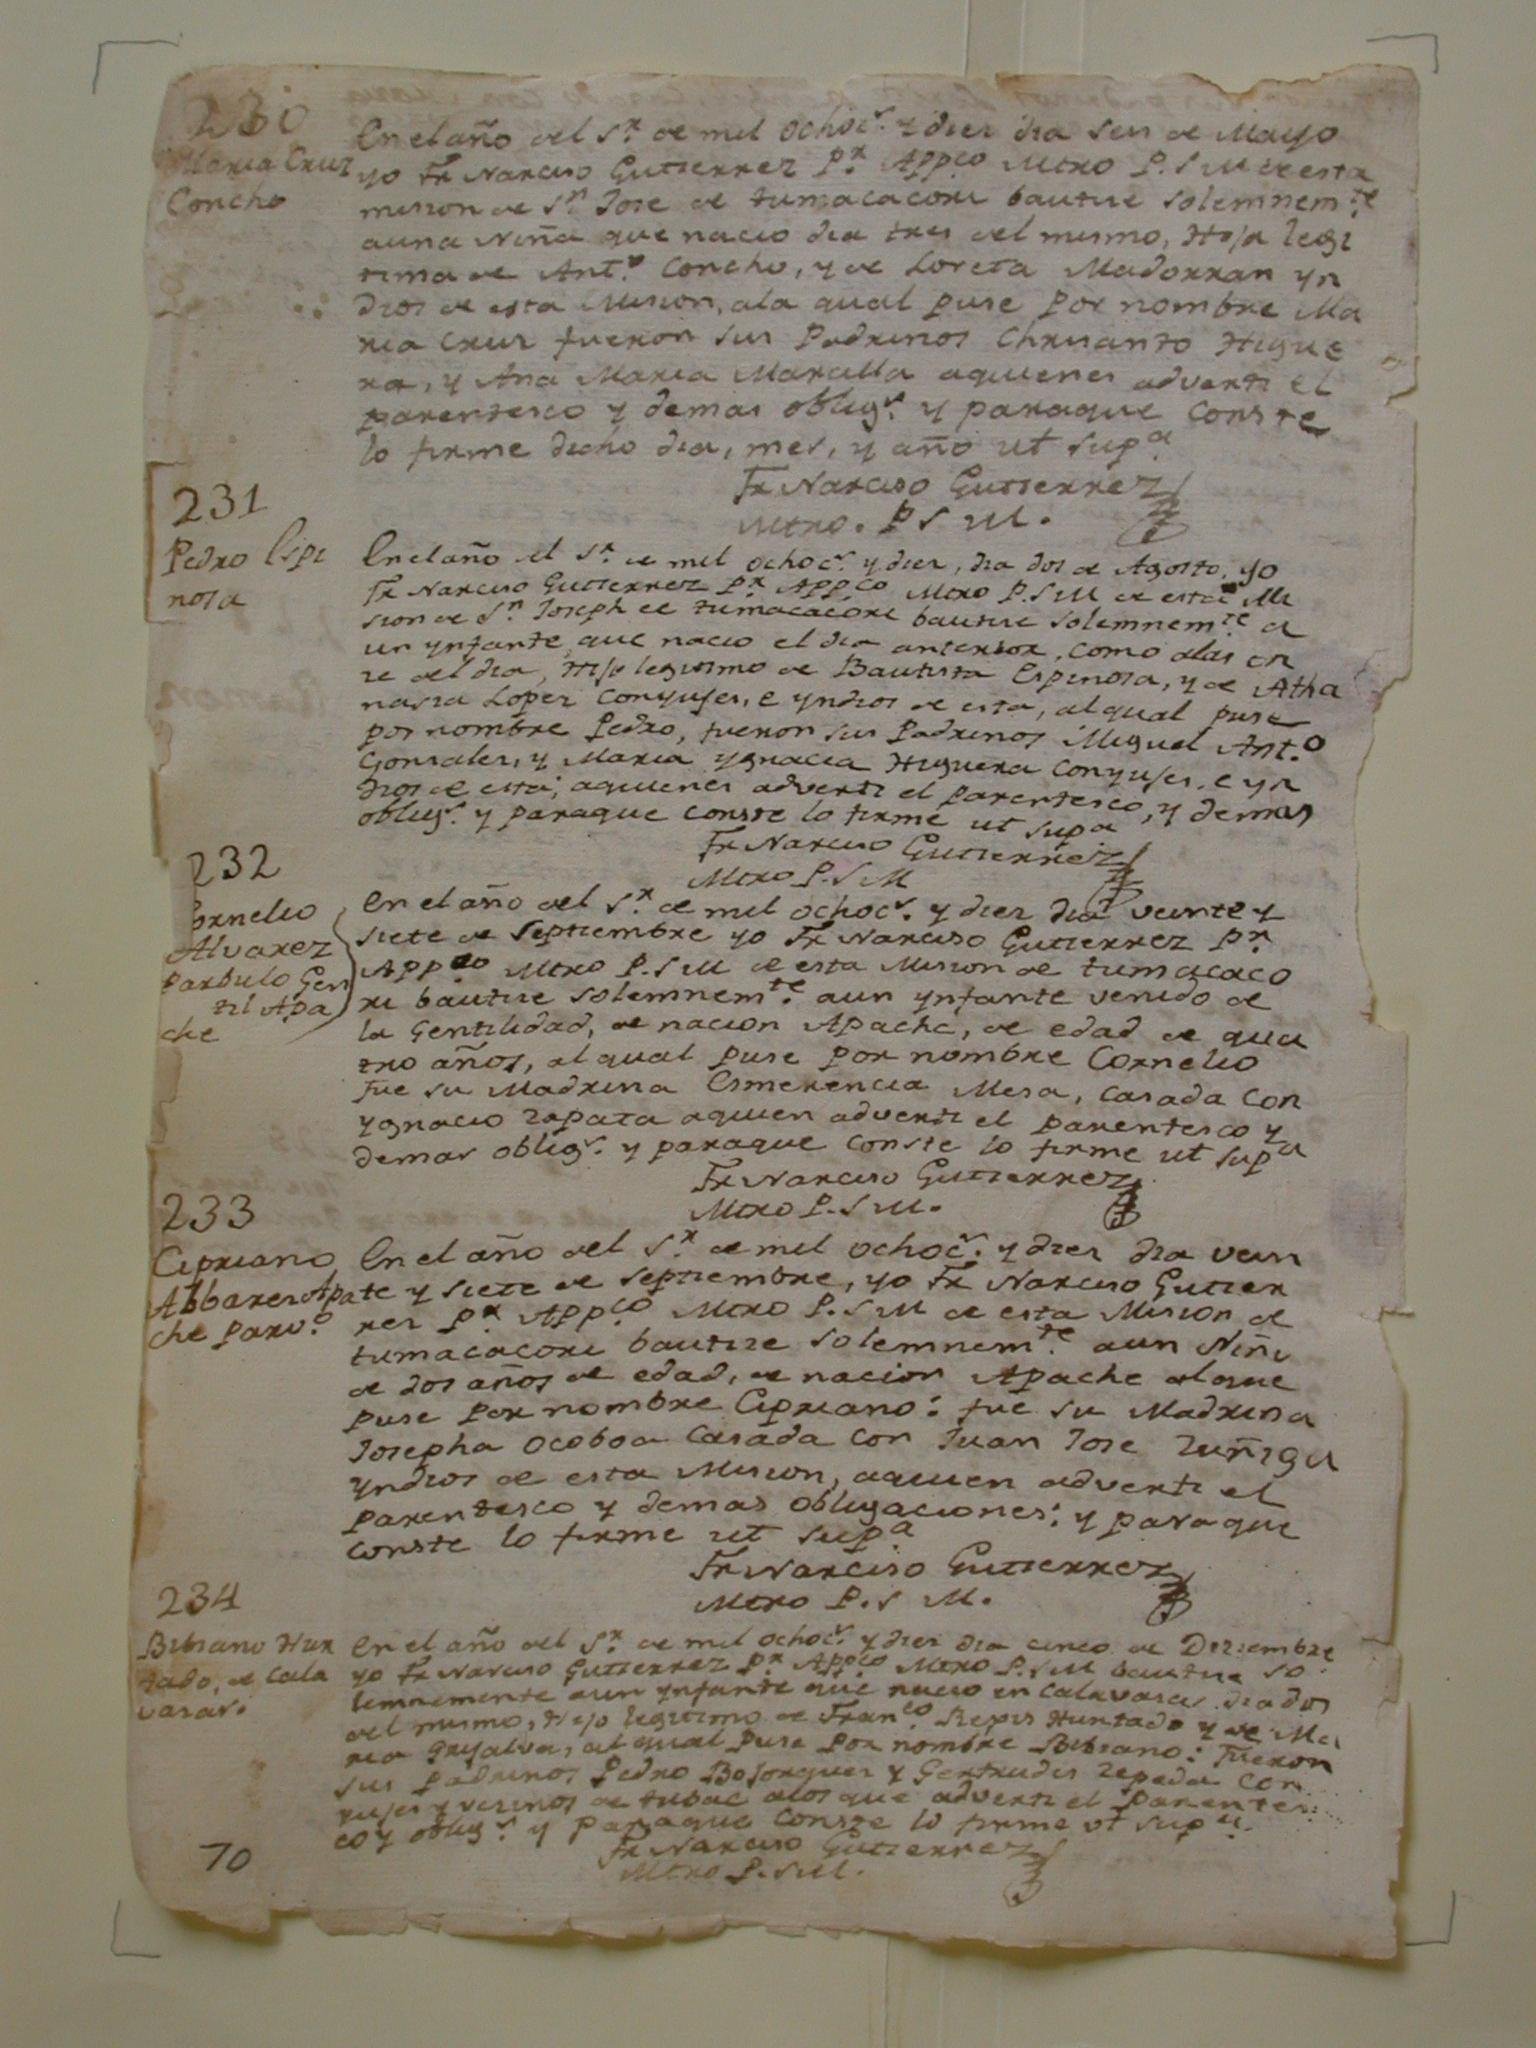 230
Maria Cruz
Concho
En el año del Sr. de mil ochocs. y diez dia seis de Mayo
yo Fr Narciso Gutierrez Pr. Appco Mtro P.S M de esta
mision de Sn Jose de tumacacori bautise solemnemte.
a una Niña que nacio dia tres del mismo, Hija legi
tima de Anto. Concho, y de Loreta Madorran yn
dios de esta Mision, ala qual puse por nombre Ma
ria Cruz fueron sus Padrinos Chrisanto Higue
ra, y Ana Maria aquienes adverti el
parentesco y demas obligs. y paraque conste
lo firme dicho dia, mes, y año ut supa
Fr Narciso Gutierrez
Mtro. P S M.
231
Pedro Espi
nosa
En el año del Sr. de mil ochocs. y diez, dia dos de Agosto, yo
Fr Narciso Gutierrez Pr. Appco Mtro P.S M de esta Mi
sion de Sn. Joseph de tumacacori bautise solemnemte a
un ynfante que nacio el dia anterior, como alas on
ze del dia, Hijo legitimo de Bautista Espinosa, y de Atha
nasia Lopez Conyujes, e yndios de esta, al qual puse
por nombre Pedro, fueron sus Padrinos Miguel Anto.
Gonsales, y Maria ygnacia Higuera conyujes, e yn
dios de esta; aquienes adverti el parentesco, y demas
obligs. y paraque conste lo firme ut supa
Fr Narciso Gutierrez
Mtro P.S M
232
Cornelio
Alvarez
parbulo Gen
til Apa
che
En el año del Sr. de mil ochocs. y diez dia veinte y
siete de Septiembre yo Fr Narciso Gutierrez Pr.
Appco Mtro P.S M de esta Mision de tumacaco
ri bautise solemnemte. aun ynfante venido de
la Gentilidad, de nacion Apache, de edad de qua
tro años, al qual puse por nombre Cornelio
fue su Madrina Esmerencia Mesa, casada con
ygnacio zapata aquien adverti el parentesco y
demas obligs. y paraque conste lo firme ut supa
Fr Narciso Gutierrez
Mtro P.S M.
233
Cipriano
Albares Apa
che parvo.
En el año del Sr. de mil ochocs. y diez dia vein
te y siete de septiembre, yo Fr Narciso Gutier
rez Pr. Appco. Mtro P.S M de esta Mision de
tumacacori bautize solemnemte. aun Niño
de dos años de edad, de nacion Apache al que
puse por nombre Cipriano: fue su Madrina
Josepha Ocoboa casada con Juan Jose zuñiga
yndios de esta Mision, aquien adverti el
parentesco y demas obligaciones: y paraque
conste lo firme ut supa
Fr Narciso Gutierrez
Mtro P.S M.
234
Bibiano Hur
tado, de Cala
vasas.
En el año del Sr. de mil ochocs. y diez dia cinco de Diziembre
yo Fr Narciso Gutierrez Pr. Appco Mtro P.S M bautise so
lemnemente aun ynfante que nacio en Calavasas dia dos
del mismo, Hijo legitimo de Franco. Repis Hurtado y de Ma
ria grijalva, al qual puse por nombre Bibiano: fueron
sus padrinos Pedro Bojorques y Gertrudis zepeda con
yujes y vezinos de tubac alos que adverti el parentes
co y obligs. y paraque conste lo firme ut supa.
Fr Narciso Gutierrez
Mtro P.S M.
70